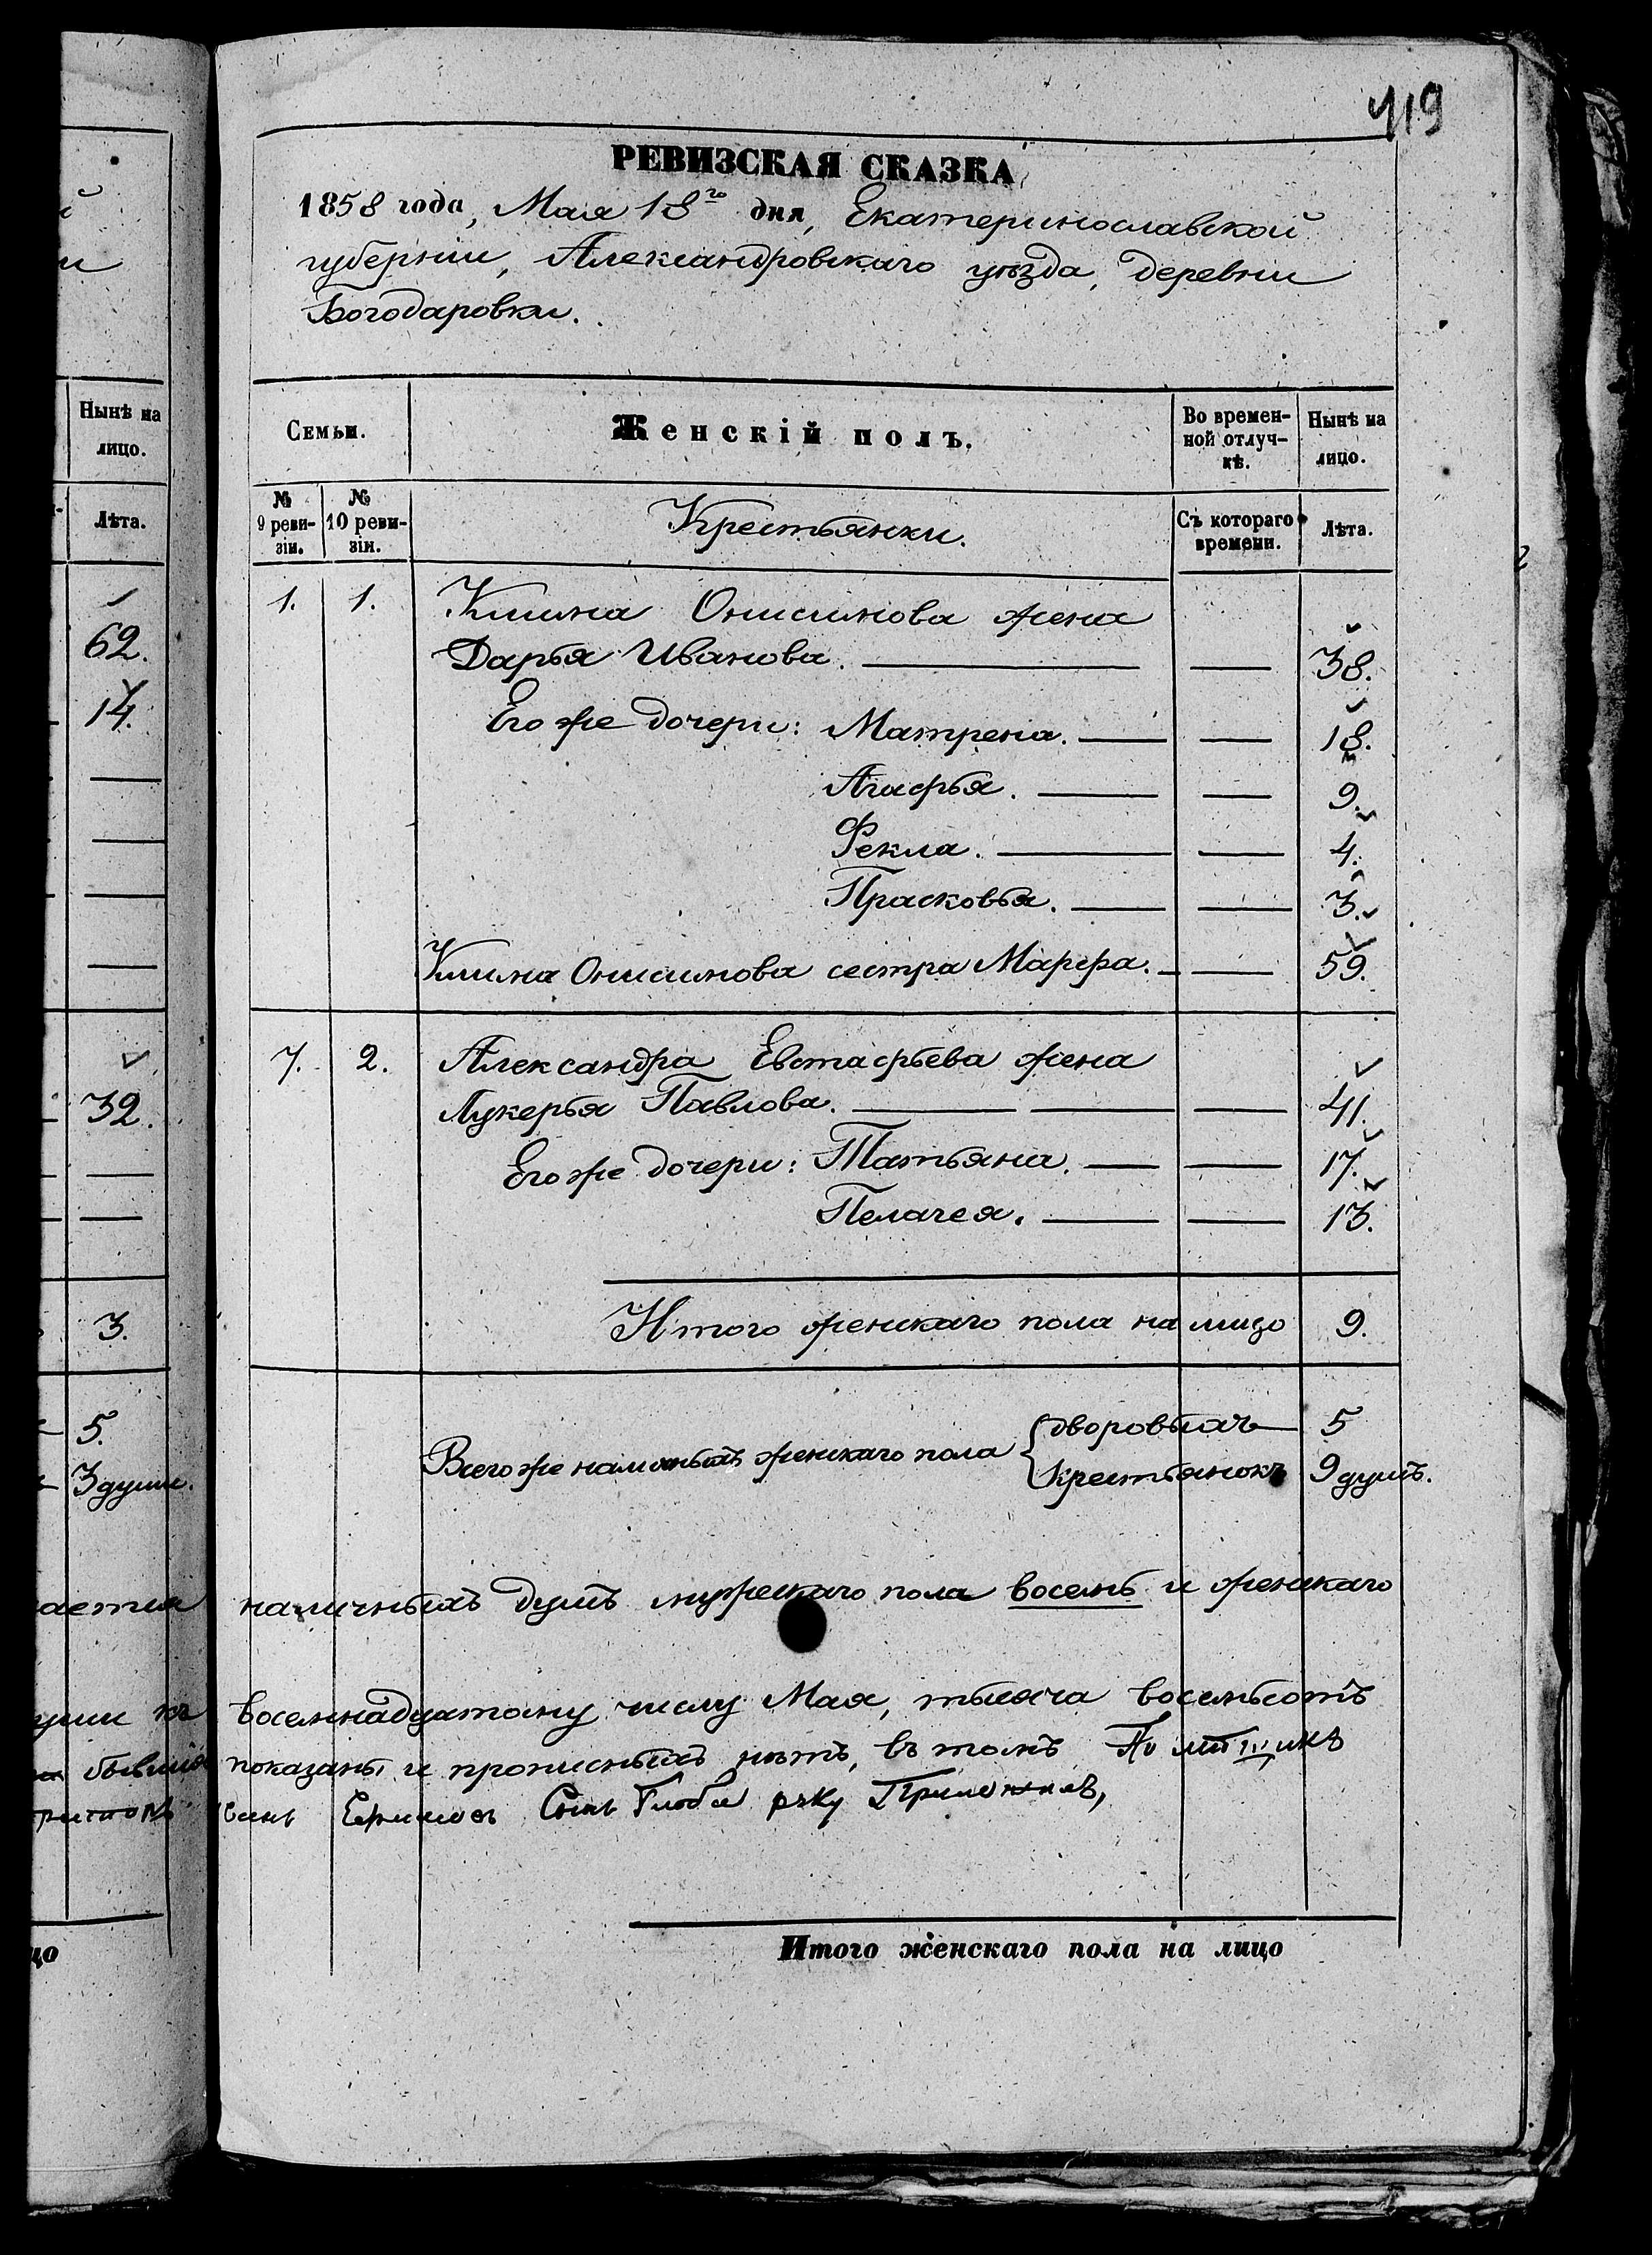 419
РЕВИЗСКАЯ СКАЗКА
1858 года, Мая 18го дня, Екатеринославской
губерніи, Александровскаго уѣзда, деревни
Богодаровки.
Нынѣ на
лицо.
Лѣта.
62.
14.
32.
3.
5.
3 души.
Семьи.
Женскій полъ.
Во времен-
ной отлуч-
кѣ.
Нынѣ на
лицо.
№
9 реви-
зіи.
№
10 реви-
зіи.
Крестьянки.
Съ котораго
времени.
Лѣта.
1. 1. Клима Онисимова жена
Дарья Иванова. 38.
Его же дочери: Матрена. 18.
Агафья. 9.
Фекла. 4.
Прасковья. 3.
Клима Онисимова сестра Марфа. 59.
7. 2. Александра Евстафьева жена
Лукерья Павлова. 41.
Его же дочери: Татьяна. 17.
Пелагея. 13.
Итого женскаго пола на лицо 9.
Всего же наличныхъ женскаго пола
дворовыхъ 5
крестьянокъ 9 душъ.
наличныхъ душъ мужескаго пола восемь и женскаго
восемнадцатому числу Мая, тысяча восемьсотъ
показаны и прописныхъ нѣтъ, въ томъ
Глоба руку Приложилъ,
Итого женскаго пола на лицо